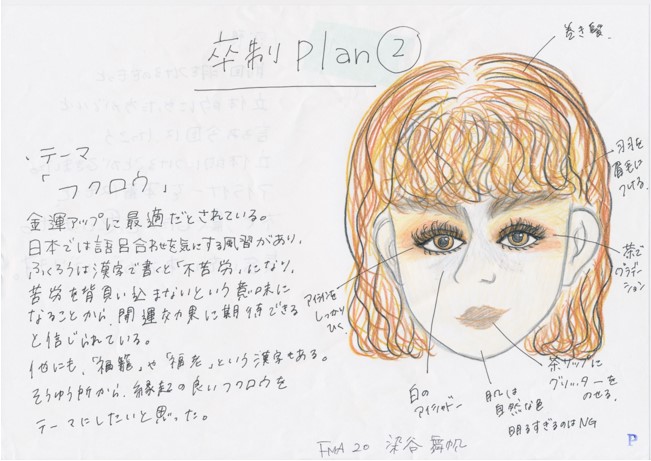 卒制 Plan②
・テーマ
「フクロウ」
金運アップに最適だとされている。
日本では語呂合わせを気にする風習があり、
ふくろうは漢字で書くと「不苦労」になり、
苦労を背負い込まないという意味に
なることから、開運効果に期待できる
と信じられている。
他にも、「福籠」や「福老」という漢字もある。
そうゆう所から、縁起の良いフクロウを
テーマにしたいと思った。
巻き髪
羽を
眉毛に
つける。
茶で
グラデー
ション
アイラインを
しっかり
ひく
白の
アイシャドー
肌は
自然な色
明るすぎるのはNG
茶リップに
グリッターを
のせる。
20 染谷 舞帆
P